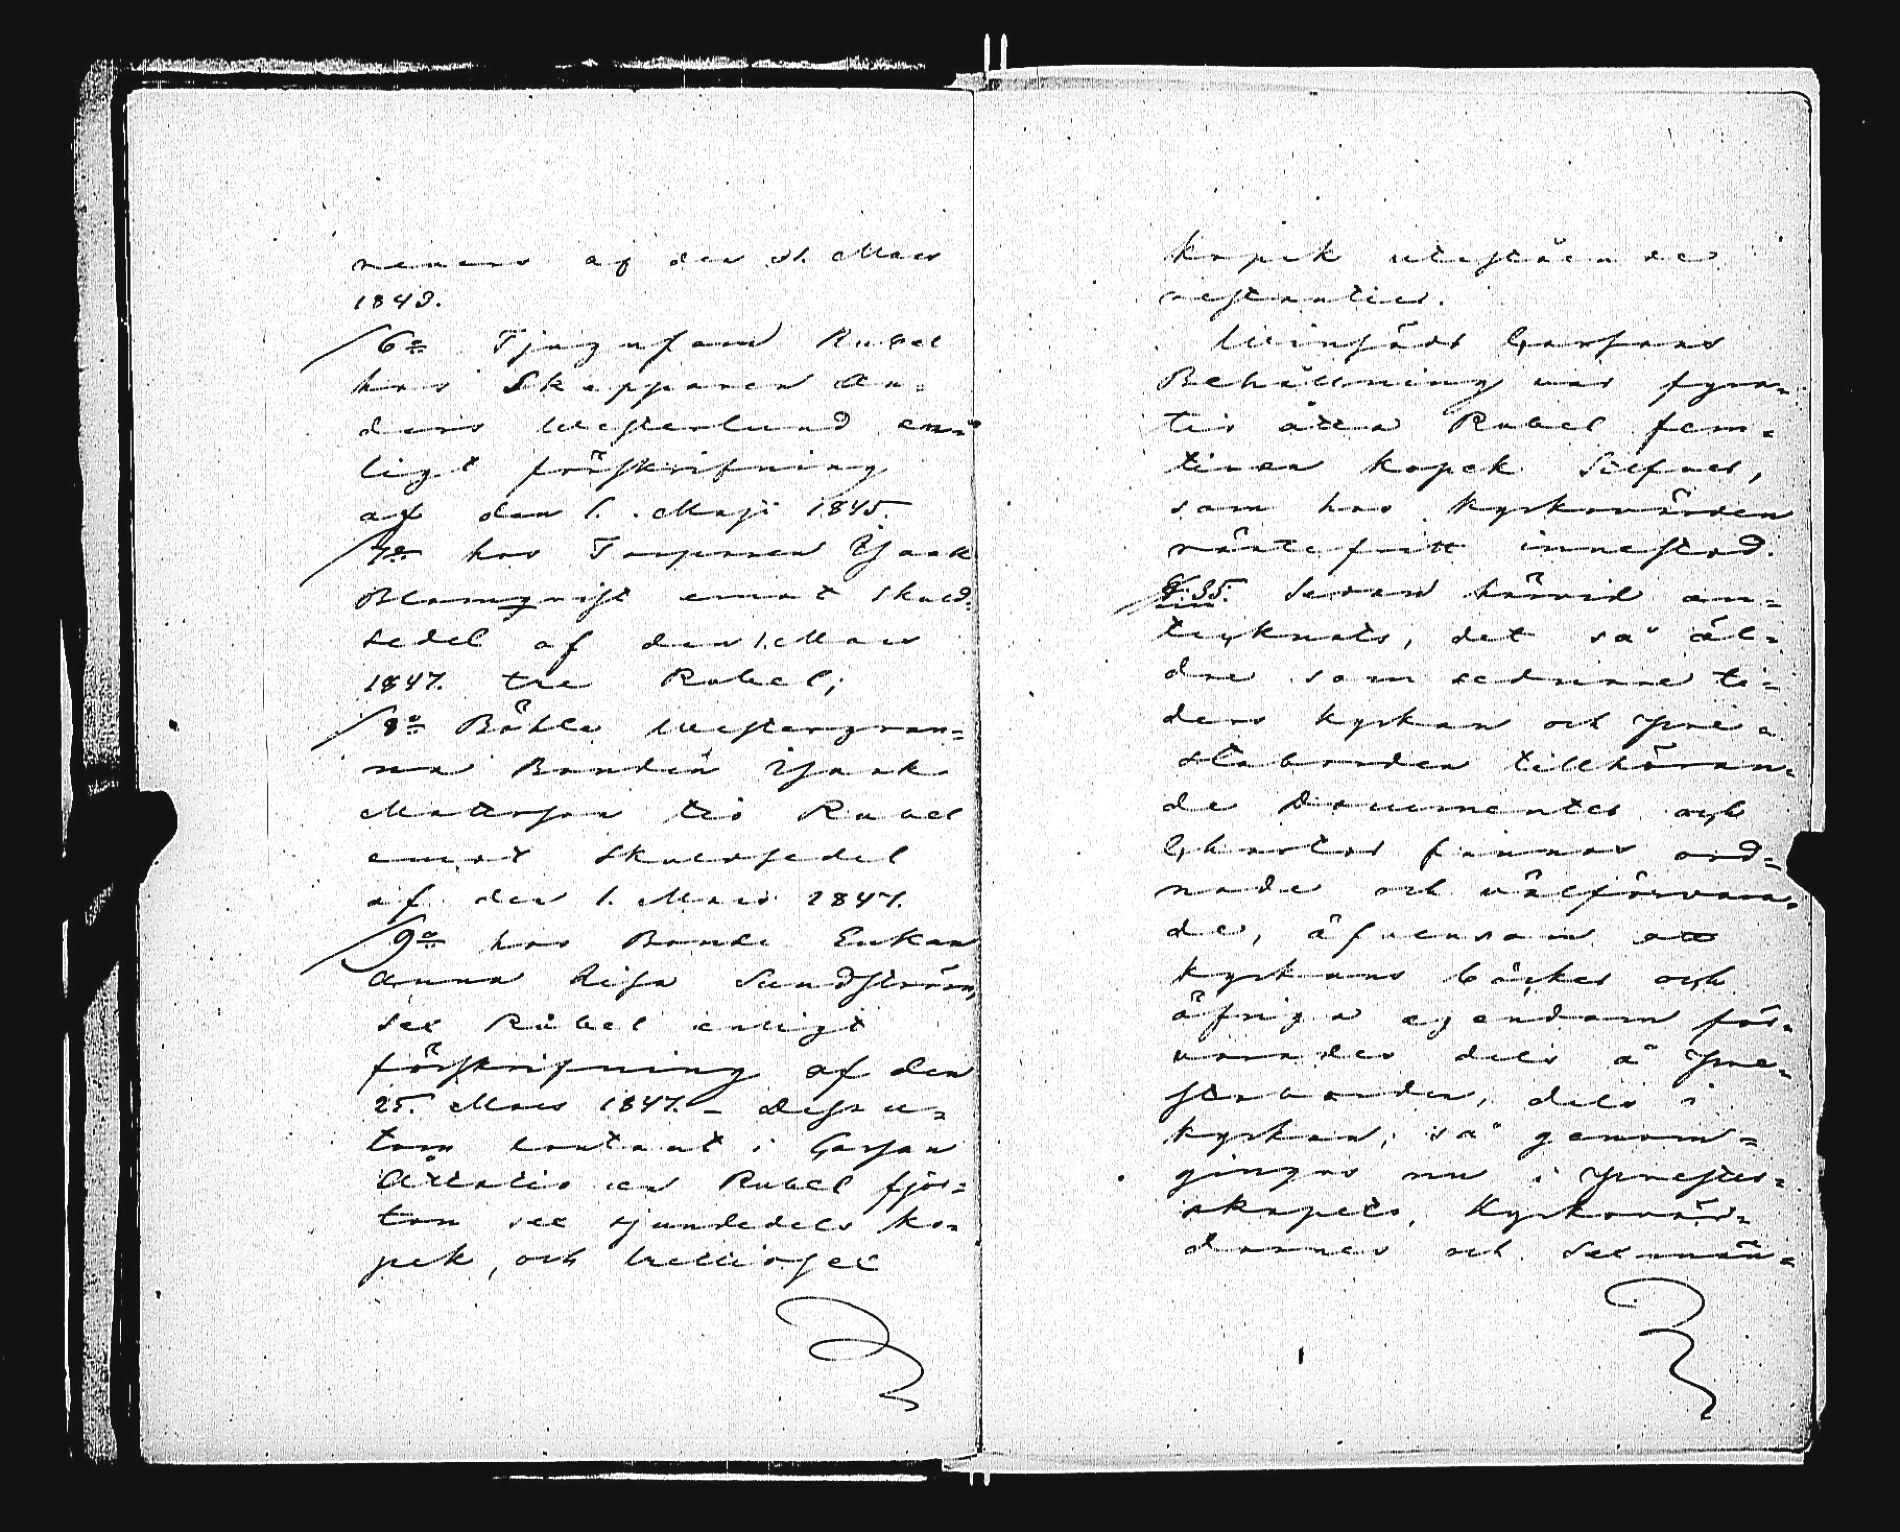 af den 31. Mars
1843.
6:o Tjugufem Rubel
hos Skepparen An=
ders Westerlund en=
ligt förskrifning
af den 1. Maji 1845.
7:o hos Torparen Isaak
Blomqvist emot Skuld=
sedel af den 1. Mars
1847. tre Rubel;
8:o Böhle Westergran=
na Bonden Isaak
Mattsson tio Rubel
emot Skuldsedel
af den 1. Mars 1847.
9:o hos Bonde Enkan
Anna Lisa Sundström,
sex Rubel enligt
förskrifning af den
25. Mars 1847. – Dessu=
tom contant i Cassan
Åttatio en Rubel fjor=
ton sex sjundedels ko=
pek, och
kopek utestående
restantier.
Winfärds Cassans
Behållning var fyra=
tio åtta Rubel fem=
tioen kopek Silfver,
som hos Kyrkovärden
räntefritt innestod.
§. 35. Sedan härvid an=
tecknats, det så äl=
dre som sednare ti=
ders kyrkan och Pre=
staborden tillhöran=
de Documenter och
Chartor finnas ord=
nade och välförvara=
de, äfvensom att
kyrkans böcker och
öfriga egendom för=
varades dels å Pre=
staborden, dels i
kyrkan; så genom=
gingos nu i Prester=
skapets, Kyrkovär=
darnes och Sexmän=